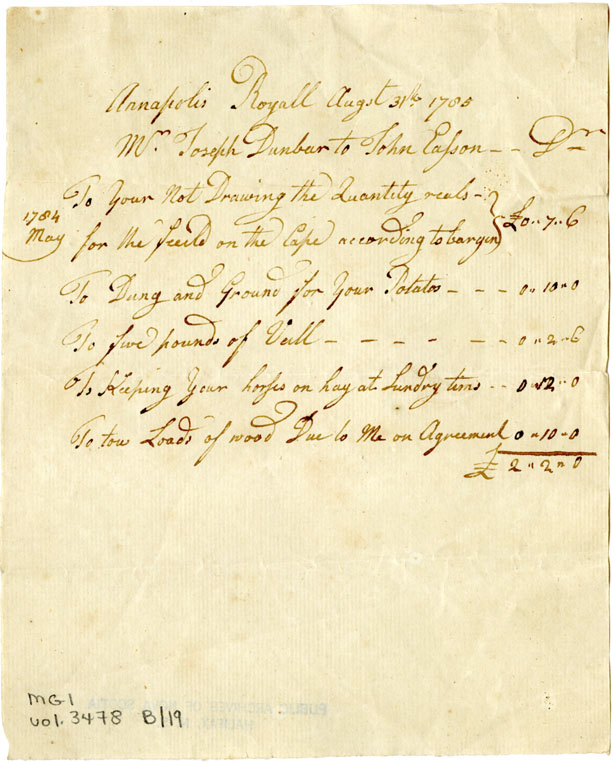 Annapolis Royall Augst 31th 1785
Mr Joseph Dunbar to John Easson - - Dr
1784
May
To Your Not Drawing the Quantity reals -
for the feeild on the Cape according to bargen } £0 " 7 " 6
To Dung and Ground for Your Potatos - - - 0 " 10 " 0
To five pounds of Veall - - - - - - 0 " 2 " 6
To Keeping Your horses on hay at Sundry tims - - 0 " 12 " 0
To tow Loads of wood Due to Me on Agreement 0 " 10 " 0
£ 2 " 2 " 0
MG1
vol. 3478 B/19
PUBLIC ARCHIVES OF NOVA SCOTIA
HALIFAX, N.